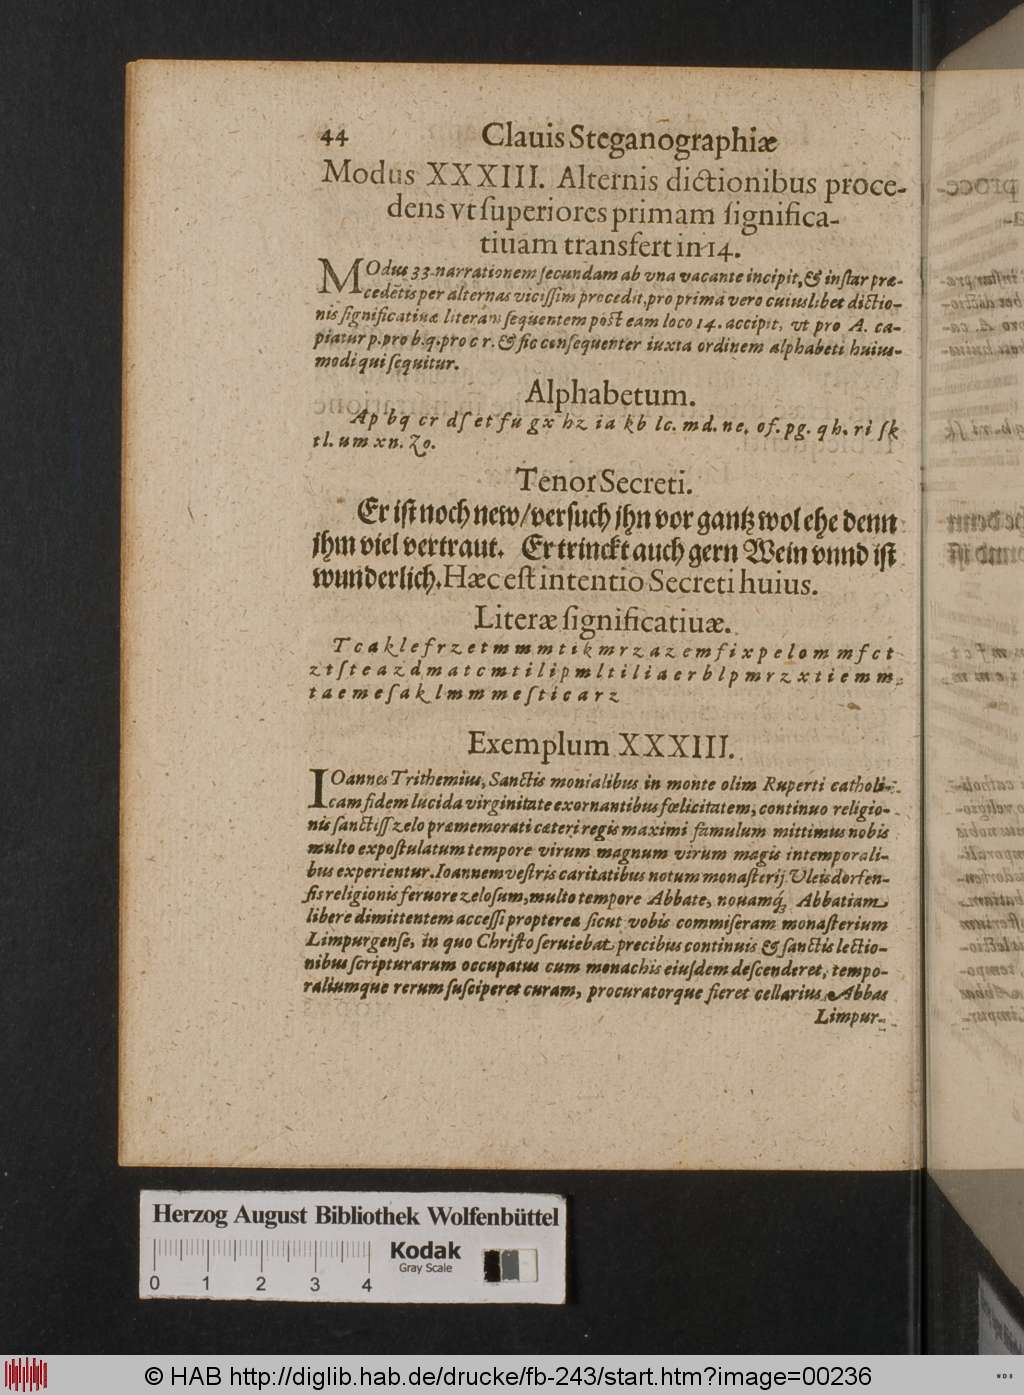 44 Clauis Steganographiæ
Modus XXXIII. Alternis dictionibus proce-
dens vt ſuperiores primam ſignifica-
tiuam transfert in 14.
MOdus 33. narrationem ſecundam ab vna vacante incipit, & inſtar præ-
cedẽtis per alternas viciſſim procedit, pro prima vero cuiuslibet dictio-
nis ſignificatiuæ literam ſequentem pòſt eam loco 14. accipit, vt pro A. ca-
piatur p. pro b. q. pro c r. & ſic conſequenter iuxta ordinem alphabeti huius-
modi qui ſequitur.
Alphabetum.
Ap bq cr dſ et fu gx hz ia kb lc. md. ne. of. pg. qh. ri ſk
tl. um xn. Zo.
Tenor Secreti.
Er iſt noch new/verſuch jhn vor gantz wol ehe denn
jhm viel vertraut. Er trinckt auch gern Wein vnnd iſt
wunderlich. Hæc eſt intentio Secreti huius.
Literæ ſignificatiuæ.
T c a k l e f r z e t m m m t i k m r z a z e m f i x p e l o m m f c t
z t ſ t e a z d m a t c m t i l i p m l t i l i a e r b l p m r z x t i e m m
t a e m e ſ a k l m m m e ſ t i c a r z
Exemplum XXXIII.
IOannes Trithemius, Sanctis monialibus in monte olim Ruperti catholi-
cam fidem lucida virginitate exornantibus fœlicitatem, continuo religio-
nis ſanctiſſ zelo præmemorati cæteri regis maximi famulum mittimus nobis
multo expoſtulatum tempore virum magnum virum magis intemporali-
bus experientur. Ioannem veſtris caritatibus notum monaſterij Vleisdorfen-
ſis religionis feruore zeloſum, multo tempore Abbate, nouamq́; Abbatiam
libere dimittentem acceſſi propterea ſicut vobis commiſeram monaſterium
Limpurgenſe, in quo Chriſto ſeruiebat precibus continuis & ſanctis lectio-
nibus ſcripturarum occupatus cum monachis eiuſdem deſcenderet, tempo-
raliumque rerum ſuſciperet curam, procuratorque fieret cellarius, Abbas
Limpur-
Herzog August Bibliothek Wolfenbüttel
Kodak
Gray Scale
0 1 2 3 4
© HAB http://diglib.hab.de/drucke/fb-243/start.htm?image=00236